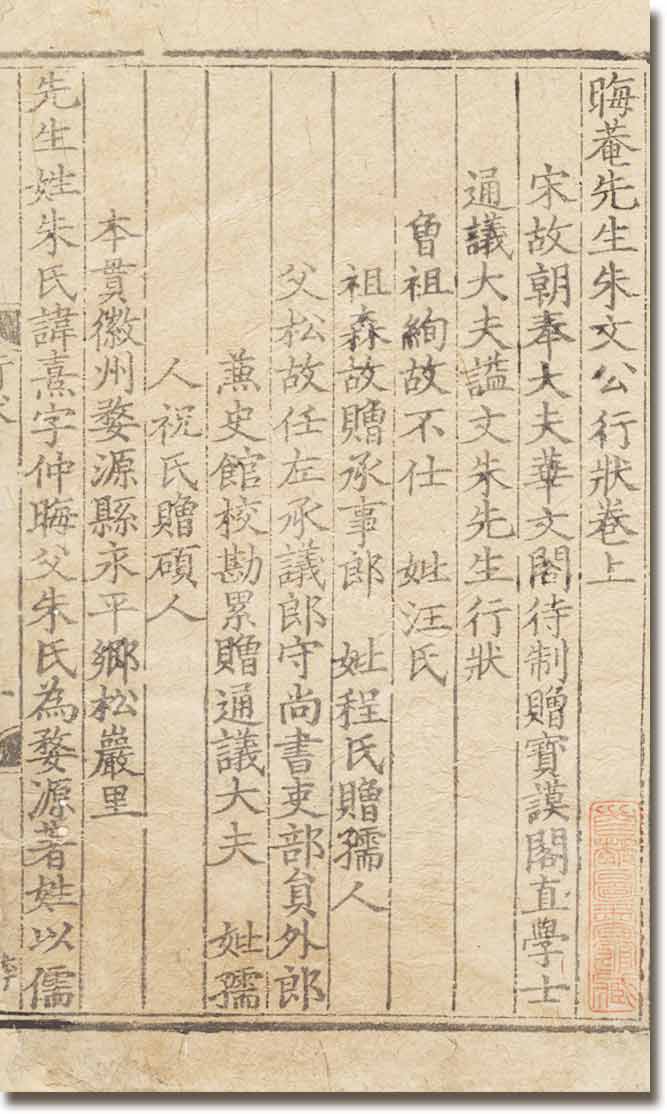 晦菴先生朱文公行狀卷上
宋故朝奉大夫華文閣待制贈寶謨閣直學士
通議大夫謚文朱先生行狀
曾祖絢故不仕 妣汪氏
祖森故贈承事郎 妣程氏贈孺人
父松故任左承議郎守尚書吏部貟外郎
蒹史館校勘累贈通議大夫 妣孺
人祝氏贈碩人
本貫徽州婺源縣永平鄉松巖里
先生姓朱氏諱熹字仲晦父朱氏為婺源著姓以儒